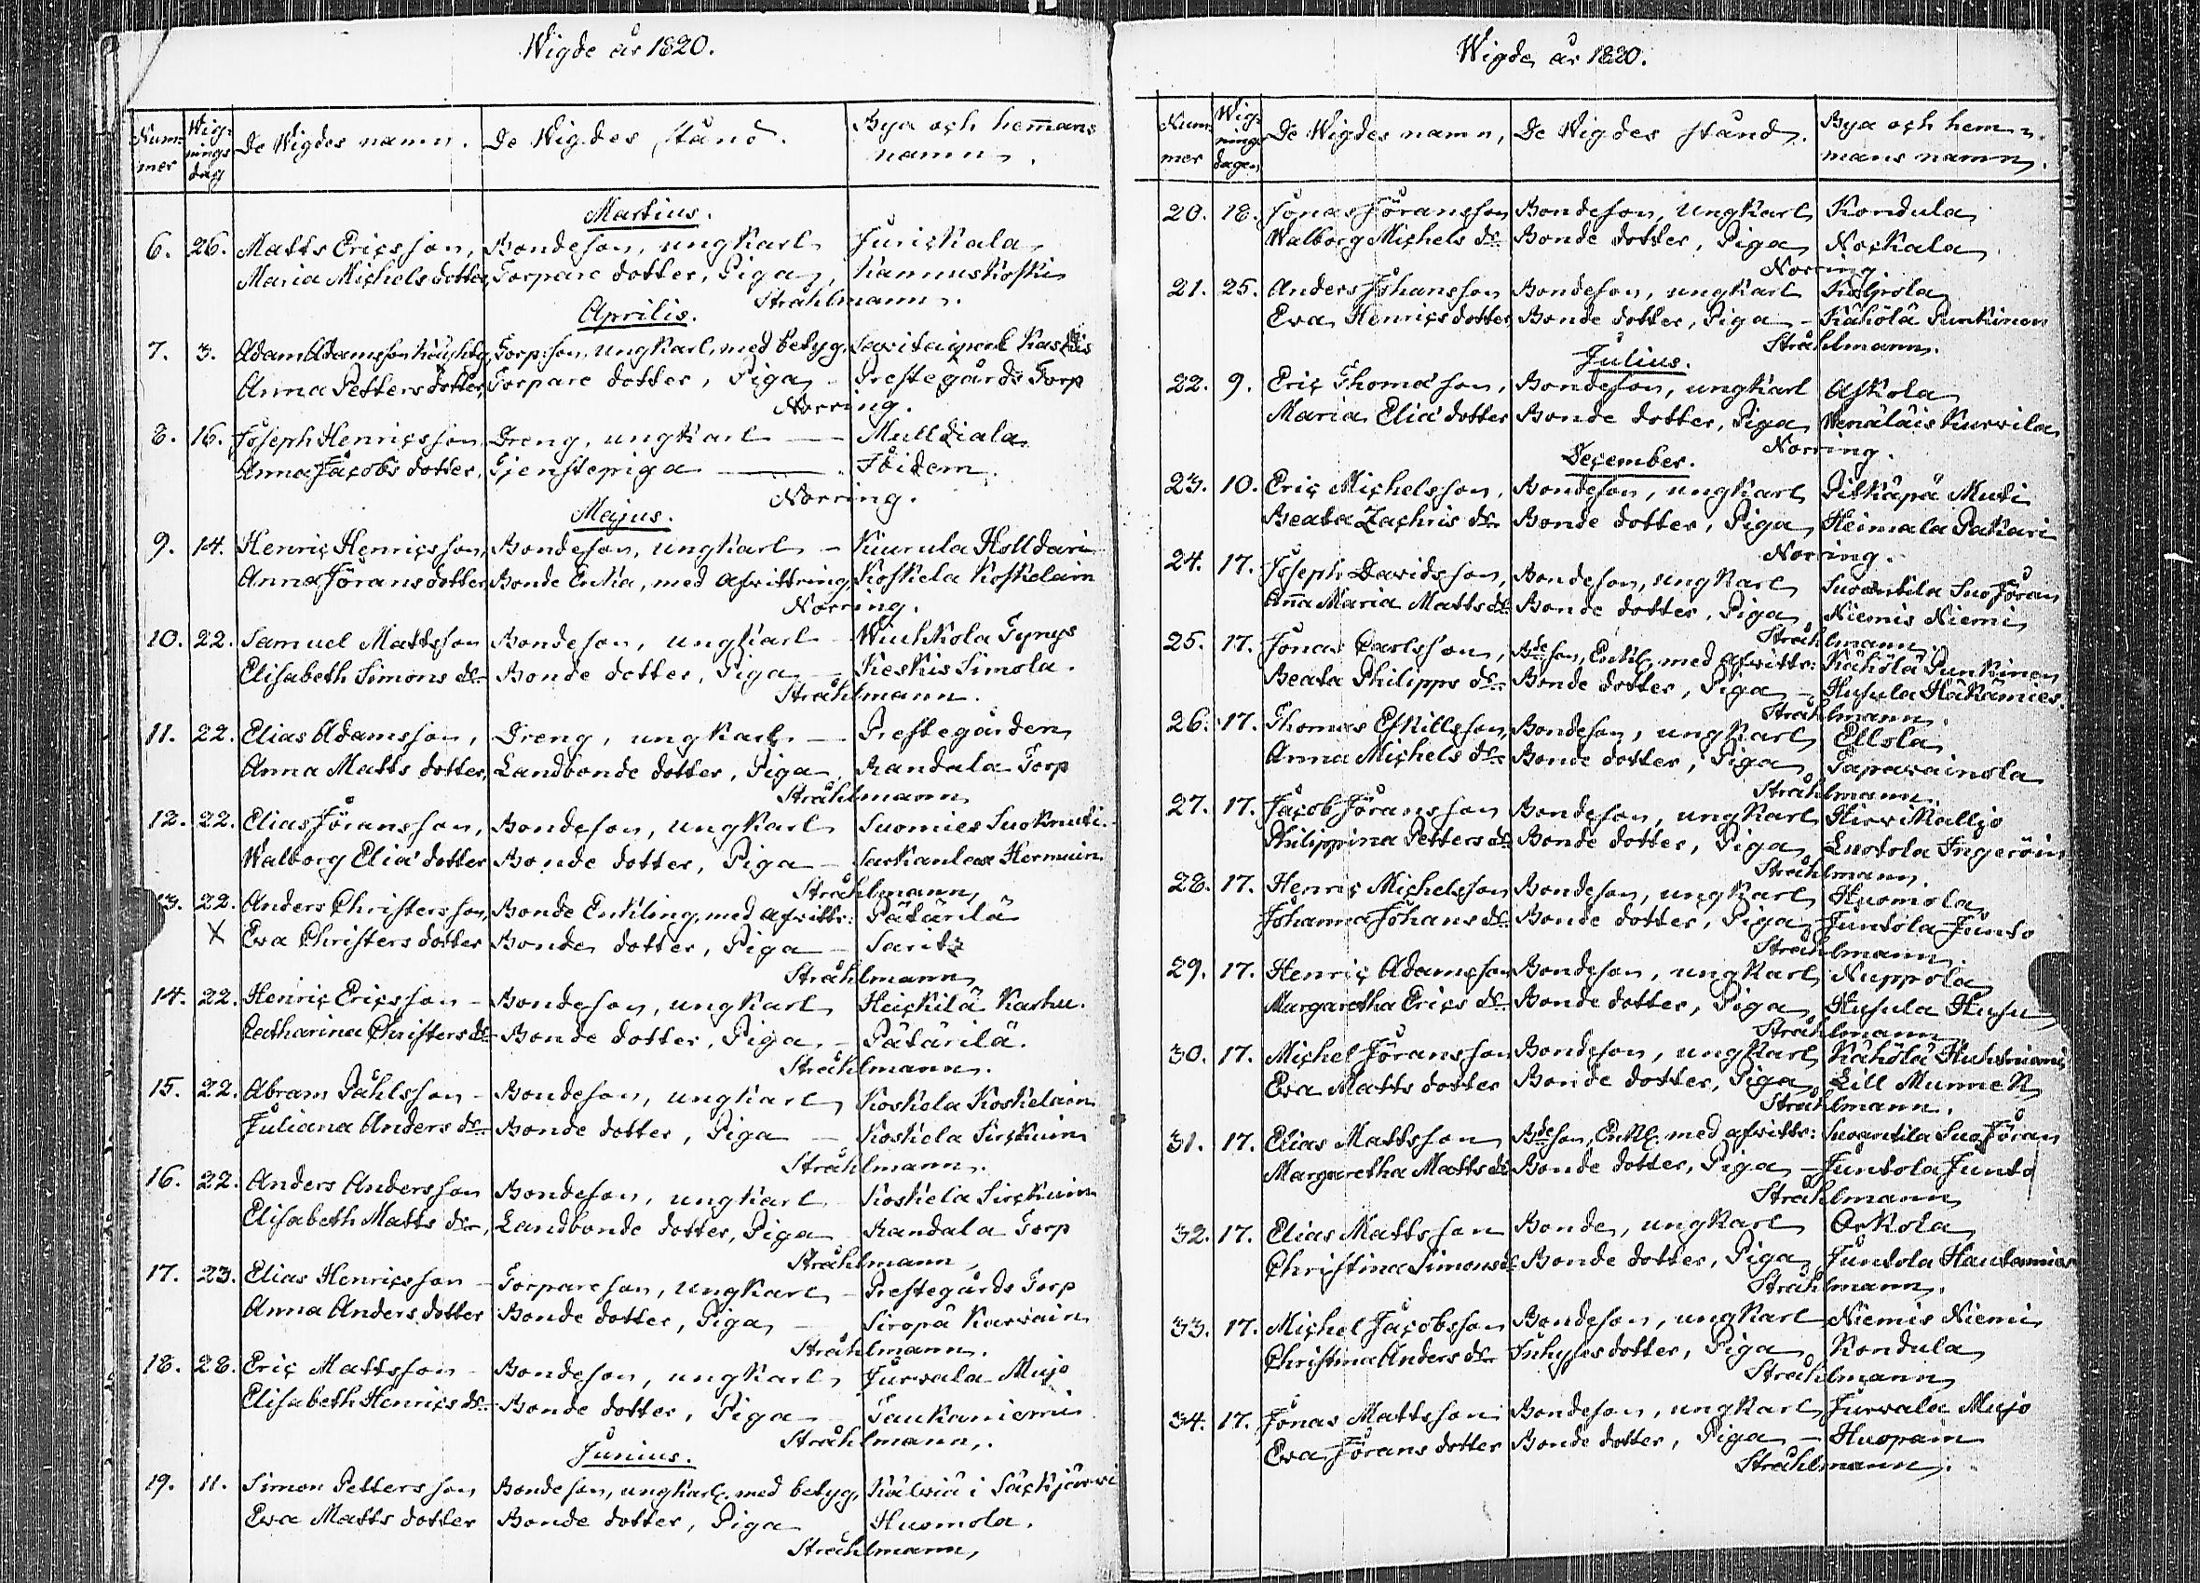 Wigde år 1820.
Num-
mer
Wig-
nings
dag
De Wigdes namn.
De Wigdes stånd.
Bya och hemans
namn.
Martius.
6. 26. Matts Ericsson, Bondeson, ungkarl Jurickala
Maria Michels dotter, Torpare dotter, Piga, Kannuskoski
Stråhlmann.
Aprilis.
7. 3. Adam Adamsson Torp:son, ungkarl, med betyg,
Anna Petters dotter, Torpare dotter, Piga - Prestegårds Torp
Norring.
8. 16. Joseph Henricsson Dreng, ungkarl — Mulldiala
Anna Jacobs dotter, Tjenstepiga — Ibidem.
Norring.
Majus.
9. 14. Henric Henricsson, Bondeson, ungkarl - Kiurula Holldari
Anna Jörans dotter, Bonde Enkia, med afwittring, Koskela Koskelain
Norring.
10. 22. Samuel Mattsson Bondeson, ungkarl - Wiuhkola Tynys
Elisabeth Simons dr Bonde dotter, Piga - Keskis Simola.
Stråhlmann.
11. 22. Elias Adamsson, Dreng, ungkarl — Prestegården
Anna Matts dotter, Landbonde dotter, Piga, Randala Torp
Stråhlmann
12. 22. Elias Jöransson, Bondeson, ungkarl Suomies Suoknuti.
Walborg Elia' dotter Bonde dotter, Piga - Sarkanlax Hermuin
Stråhlmann,
13. 22. Anders Christersson, Bonde Enkling, med afwittr: Pätärilä
X Eva Christers dotter Bonde dotter, Piga - Saritz
Stråhlmann
14. 22. Henric Ericsson - Bondeson, ungkarl Heickilä Karhu.
Catharina Christers dr Bonde dotter, Piga. - Pätärilä.
Stråhlmann.
15. 22. Abram Påhlsson - Bondeson, ungkarl Koskela Koskelain
Juliana Anders dr Bonde dotter, Piga - Koskela Sirckuin
Stråhlmann.
16. 22. Anders Andersson Bondeson, ungkarl Koskela Sirckuin
Elisabeth Matts dr, Landbonde dotter, Piga Randala Torp
Stråhlmann,
17. 23. Elias Henricsson - Torpareson, ungkarl - Prestegårds Torp
Anna Anders dotter Bonde dotter, Piga, - Siropä Karvain
Stråhlmann.
18. 28. Eric Mattsson - Bondeson, ungkarl Jurvala Mujo
Elisabeth Henrics dr Bonde dotter, Piga Taukaniemi
Stråhlmann,.
Junius.
19. 11. Simon Pettersson Bondeson, ungkarl, med betyg, Kälviä i Säckjärvi
Eva Matts dotter Bonde dotter, Piga Huomola.
Stråhlmann,
Wigde år 1820.
Num-
mer
Wig-
nings
dagen
De Wigdes namn,
De Wigdes stånd.
Bya och hem-
mans namn.
20. 18. Jonas Jöransson Bondeson, ungkarl Kondula
Walborg Michels dr Bonde dotter, Piga Nockala
Norring.
21. 25. Anders Johansson Bondeson, ungkarl
Eva Henrics dotter, Bonde dotter, Piga - Kähölä Punkinen
Stråhlmann.
Julius.
22. 9. Eric Thoma'son, Bondeson, ungkarl Askola
Maria Elia' dotter Bonde dotter, Piga Wenäläis Kurvila
Norring.
December.
23. 10. Eric Michelsson, Bondeson, ungkarl Pitkäpä Muti
Beata Zachris dr Bonde dotter, Piga, Heimala Pakari
Norring.
24. 17. Joseph Davidsson, Bondeson, ungkarl Suoantila Suo Jöran
Ana Maria Matts dr Bonde dotter, Piga Niemis Niemi
Stråhlmann
25. 17. Jonas Carlsson, Bdeson, Enkl, med afwittr: Kähölä Punkinen
Beata Philipps dr Bonde dotter, Piga - Husula Häkamies.
Stråhlmann.
26. 17. Thomas Eskillsson, Bondeson, ungkarl Ellola
Anna Michels dr Bonde dotter, Piga Tapavainola
Stråhlmann.
27. 17. Jacob Jöransson Bondeson, ungkarl Hirvikallio
Philippina Petters dr Bonde dotter, Piga Luotola Ingeröin
Stråhlmann.
28. 17. Henric Michelsson Bondeson, ungkarl Huomola
Johanna Johans dr Bonde dotter, Piga Juntola Junto
Stråhlmann.
29. 17. Henric Adamsson Bondeson, ungkarl Nuppola
Margaretha Erics dr Bonde dotter, Piga, Husula Husu
Stråhlmann
30. 17. Michel Jöransson Bondeson, ungkarl Kähölä Huhtniemi
Eva Matts dotter Bonde dotter, Piga Lill Munne N
Stråhlmann.
31. 17. Elias Mattsson Bdeson, Enkl. med afwittr: Suoantila Suo Jöran
Margaretha Matts dr Bonde dotter, Piga - Juntola Junto
Stråhlmann
32. 17. Elias Mattsson Bonde, ungkarl Orkola
Christina Simons dr Bonde dotter, Piga Juntola Hautamies
Stråhlmann.
33. 17. Michel Jacobsson Bondeson, ungkarl Niemis Niemi
Christina Anders dr Inhyses dotter, Piga Kondula
Stråhlmann
34. 17. Jonas Mattsson Bondeson, ungkarl Jurvala Mujo
Eva Jörans dotter Bonde dotter, Piga - Huopain
Stråhlmann.